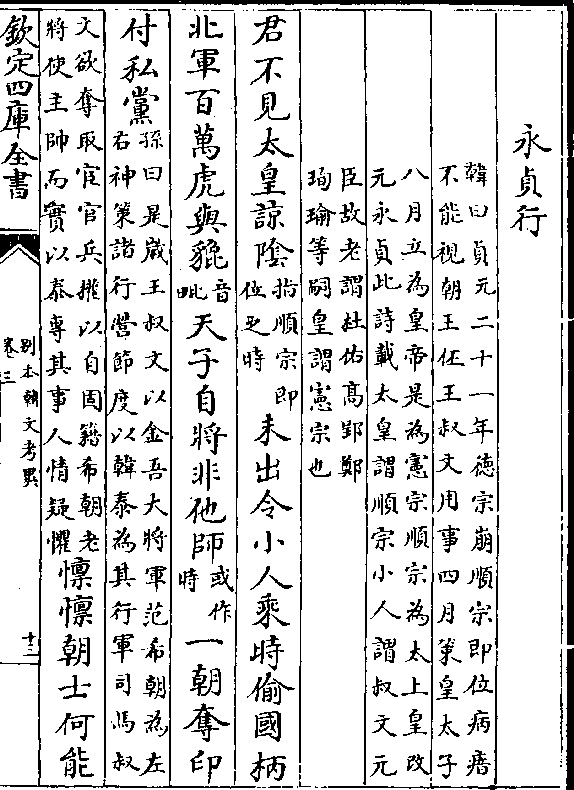 永貞行
韓曰貞元二十一年德宗崩順宗即位病瘖
不能視朝王伾王叔文用事四月策皇太子
八月立為皇帝是為憲宗順宗為太上皇改
元永貞此詩載太皇謂順宗小人謂叔文元
臣故老謂杜佑髙郢鄭
珣瑜等嗣皇謂憲宗也
君不見太皇諒陰指順宗即位之時未出令小人乘時偷國柄
北軍百萬虎與貔音毗天子自將非他師或作時一朝奪印
付私黨孫曰是嵗王叔文以金吾大將軍范希朝為左右神策諸行營節度以韓泰為其行軍司馬叔
文欲奪取宦官兵㩲以自固籍希朝老將使主帥而實以泰專其事人情疑懼懍懍朝士何能
欽定四庫全書
別本韓文考異
卷三
十三